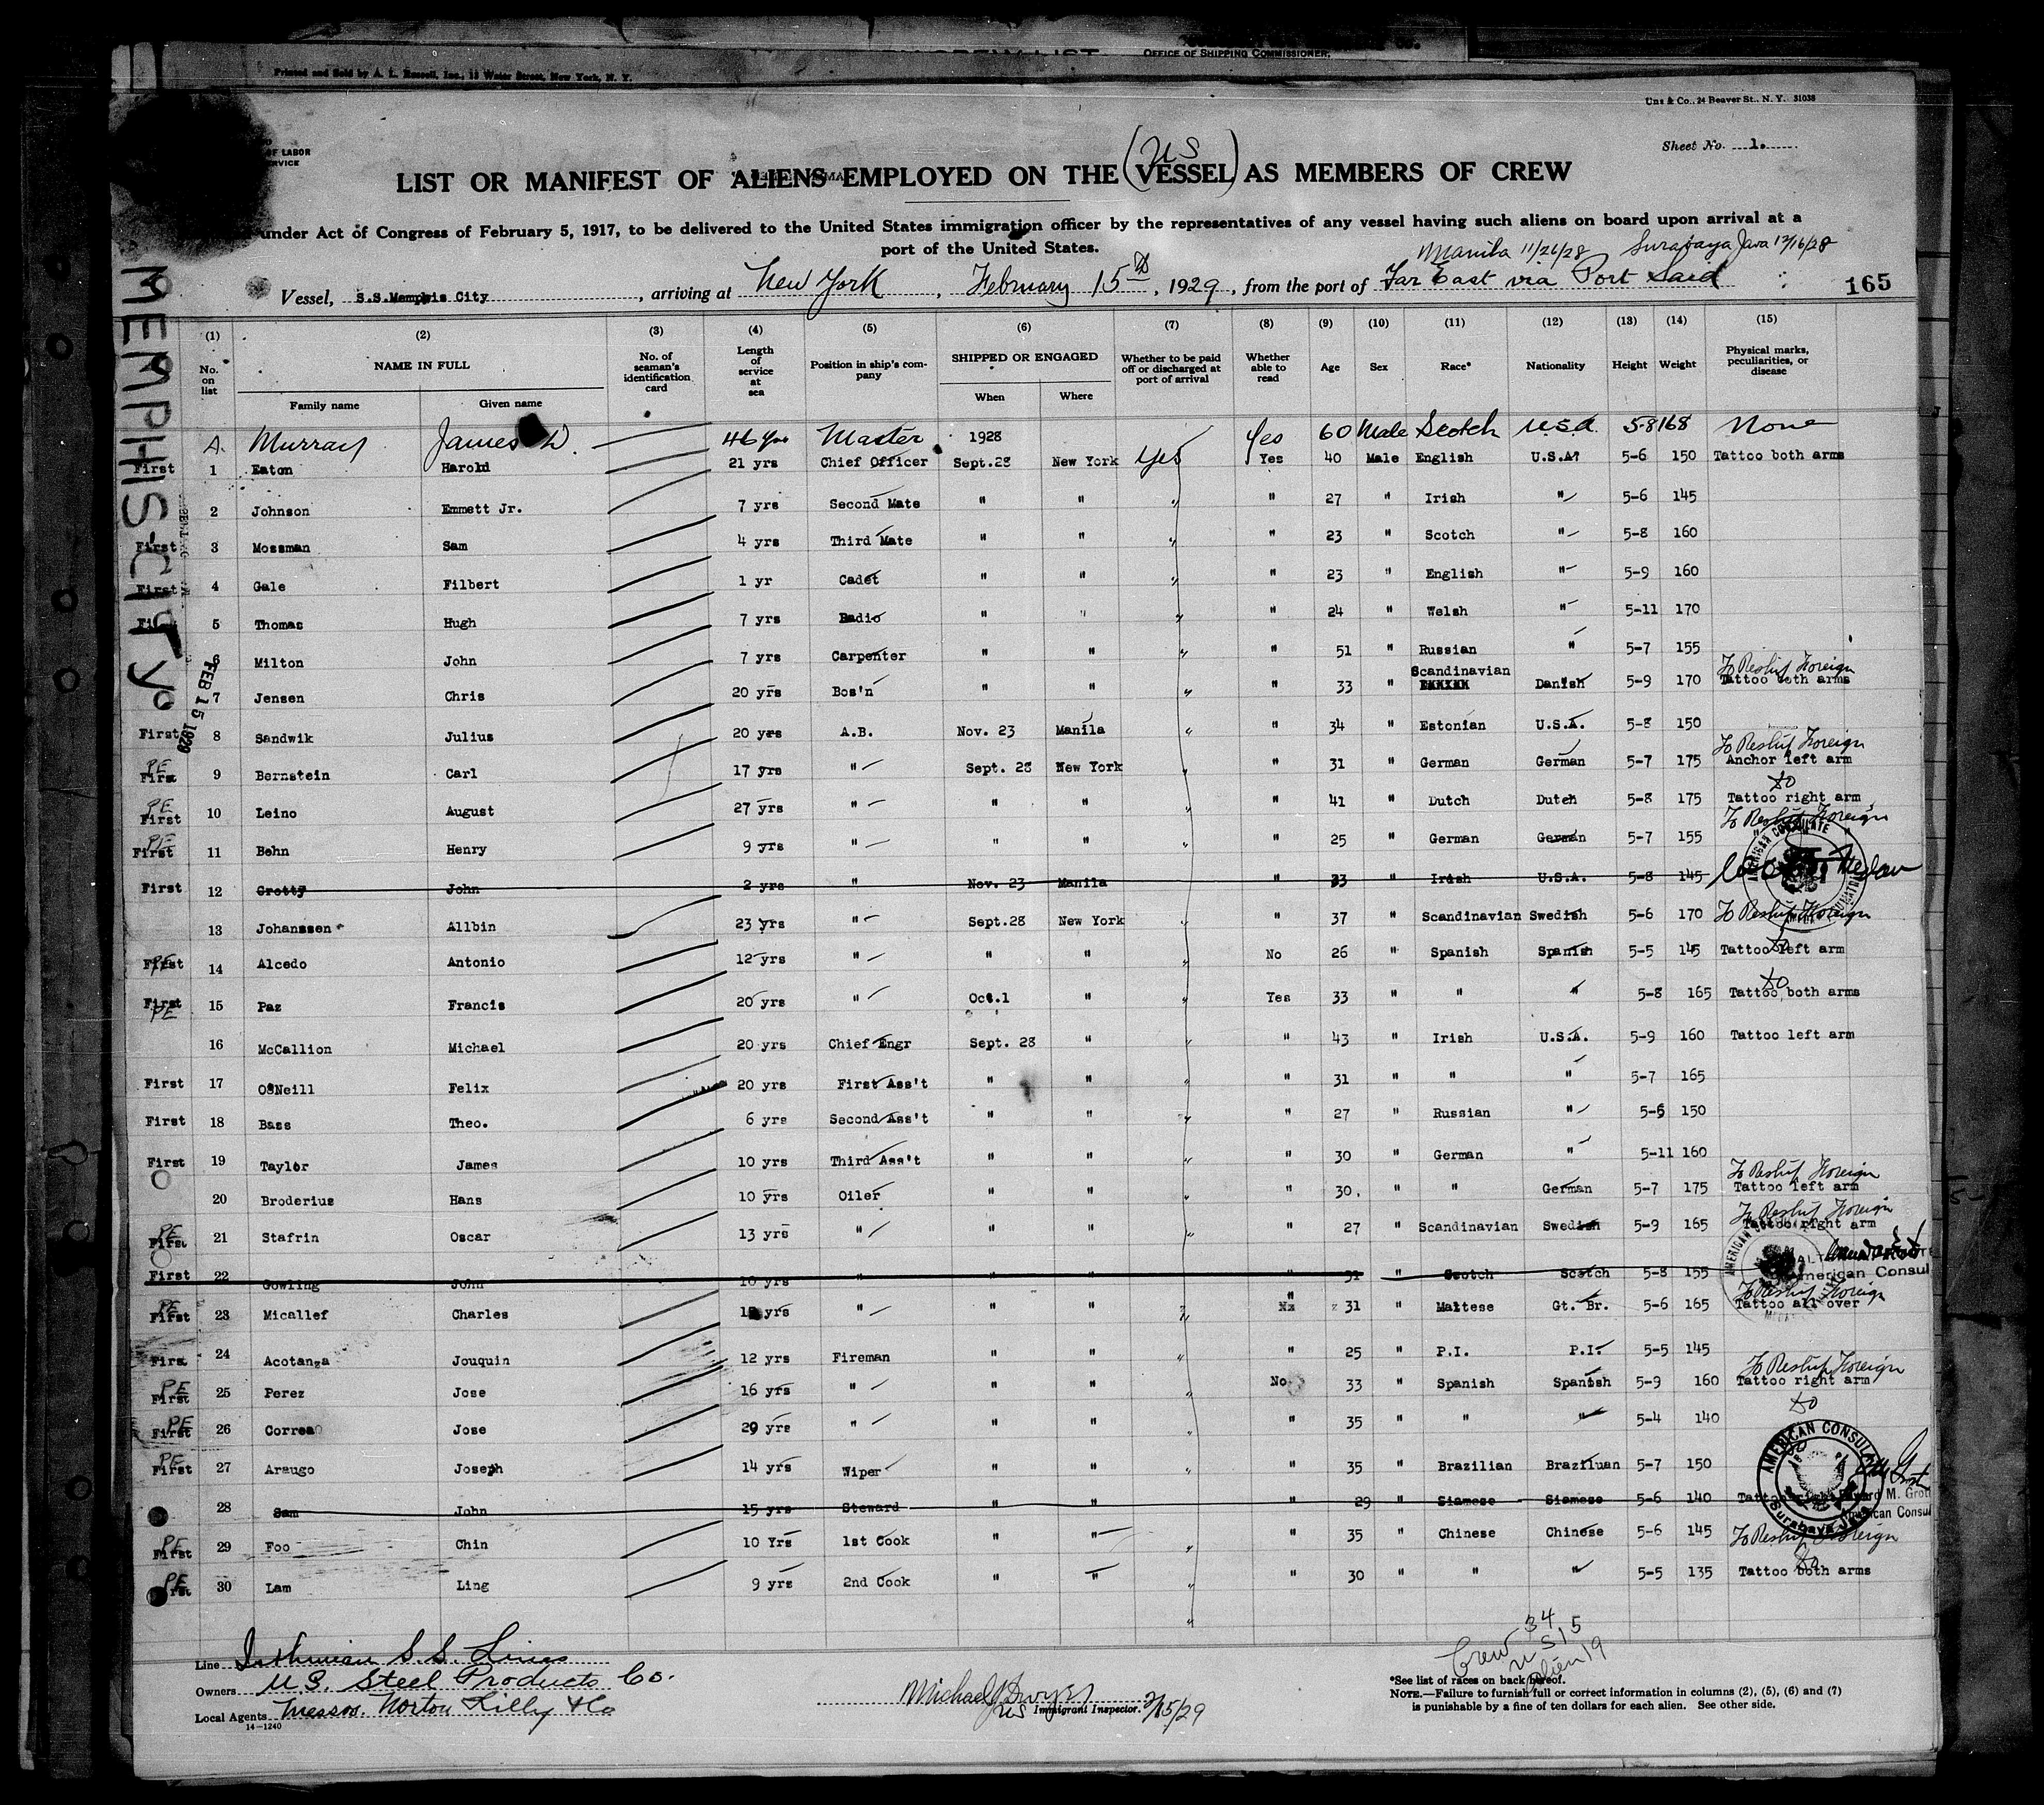 OFFICE OF SHIPPING COMMISSIONER.
Printed and Sold by A. L. Russell, Inc., 12 Water Street, New York, N. Y.
Unz & Co., 24 Beaver St., N. Y. 31038
OF LABOR
Sheet No. 1.
LIST OR MANIFEST OF ALIENS EMPLOYED ON THE (US VESSEL) AS MEMBERS OF CREW
under Act of Congress of February 5, 1917, to be delivered to the United States immigration officer by the representatives of any vessel having such aliens on board upon arrival at a
port of the United States.
Manila 11/26/28 Surabaya Java 12/16/28
Vessel, S.S. Memphis City, arriving at New York, February 15th, 1929, from the port of Far East via Port Said
165
MEMPHIS-CITY
FEB 15 1929
(1) (2) (3) (4) (5) (6) (7) (8) (9) (10) (11) (12) (13) (14) (15)
No. on list NAME IN FULL Family name Given name No. of seaman's identification card Length of service at sea Position in ship's company SHIPPED OR ENGAGED When Where Whether to be paid off or discharged at port of arrival Whether able to read Age Sex Race* Nationality Height Weight Physical marks, peculiarities, or disease
A. Murray James D. 46 yrs Master 1928 Yes 60 Male Scotch U.S.A. 5-8 168 None
First 1 Eaton Harold 21 yrs Chief Officer Sept.28 New York Yes Yes 40 Male English U.S.A. 5-6 150 Tattoo both arms
2 Johnson Emmett Jr. 7 yrs Second Mate " " " " 27 " Irish " 5-6 145
First 3 Mossman Sam 4 yrs Third Mate " " " " 23 " Scotch " 5-8 160
First 4 Gale Filbert 1 yr Cadet " " " " 23 " English " 5-9 160
5 Thomas Hugh 7 yrs Radio " " " " 24 " Welsh " 5-11 170
6 Milton John 7 yrs Carpenter " " " " 51 " Russian " 5-7 155
7 Jensen Chris 20 yrs Bos'n " " " " 33 " Scandinavian Danish 5-9 170 To Reship Foreign Tattoo both arms
First 8 Sandwik Julius 20 yrs A.B. Nov. 23 Manila " " 34 " Estonian U.S.A. 5-8 150
PE First 9 Bernstein Carl 17 yrs " Sept. 28 New York " " 31 " German German 5-7 175 To Reship Foreign Anchor left arm
PE First 10 Leino August 27 yrs " " " " " 41 " Dutch Dutch 5-8 175 Do Tattoo right arm
PE First 11 Behn Henry 9 yrs " " " " " 25 " German German 5-7 155 To Reship Foreign
First 12 Grotty John 2 yrs " Nov. 23 Manila " 33 " Irish U.S.A. 5-8 145
13 Johanssen Allbin 23 yrs " Sept.28 New York " " 37 " Scandinavian Swedish 5-6 170 To Reship Foreign
PE First 14 Alcedo Antonio 12 yrs " " " " No 26 " Spanish Spanish 5-5 145 Do Tattoo left arm
First PE 15 Paz Francis 20 yrs " Oct.1 " " Yes 33 " " " 5-8 165 Do Tattoo both arms
16 McCallion Michael 20 yrs Chief Engr Sept. 28 " " " 43 " Irish U.S.A. 5-9 160 Tattoo left arm
First 17 O'Neill Felix 20 yrs First Ass't " " " " 31 " " " 5-7 165
First 18 Bass Theo. 6 yrs Second Ass't " " " " 27 " Russian " 5-6 150
First 19 Taylor James 10 yrs Third Ass't " " " " 30 " German " 5-11 160
20 Broderius Hans 10 yrs Oiler " " " " 30 " " German 5-7 175 To Reship Foreign Tattoo left arm
PE First 21 Stafrin Oscar 13 yrs " " " " " 27 " Scandinavian Swedish 5-9 165 To Reship Foreign Tattoo right arm
First 22 Gowling John 10 yrs " " " " 31 " Scotch Scotch 5-8 155
American Consul
PE First 23 Micallef Charles yrs " " " " " 31 " Maltese Gt. Br. 5-6 165 To Reship Foreign Tattoo all over
First 24 Acotanza Jouquin 12 yrs Fireman " " " " 25 " P.I. P.I. 5-5 145
PE First 25 Perez Jose 16 yrs " " " " No 33 " Spanish Spanish 5-9 160 To Reship Foreign Tattoo right arm
PE First 26 Correa Jose 29 yrs " " " " " 35 " " " 5-4 140 Do
PE First 27 Araugo Joseph 14 yrs Wiper " " " " 35 " Brazilian Braziluan 5-7 150 Do
28 Sam John 15 yrs Steward " " " 29 " Siamese Siamese 5-6 140
AMERICAN CONSULATE Surabaya, Java
American Consul
PE First 29 Foo Chin 10 Yrs 1st Cook " " " " 35 " Chinese Chinese 5-6 145 To Reship Foreign
PE 30 Lam Ling 9 yrs 2nd Cook " " " " 30 " " " 5-5 135 Do Tattoo both arms
Crew 34
US 15
Alien 19
Line Isthmian S.S. Lines
Owners U.S. Steel Products Co.
Local Agents Messrs. Norton Lilly & Co
14-1240
Michael J Dwyer
US Immigrant Inspector. 2/15/29
*See list of races on back hereof.
NOTE.—Failure to furnish full or correct information in columns (2), (5), (6) and (7)
is punishable by a fine of ten dollars for each alien. See other side.